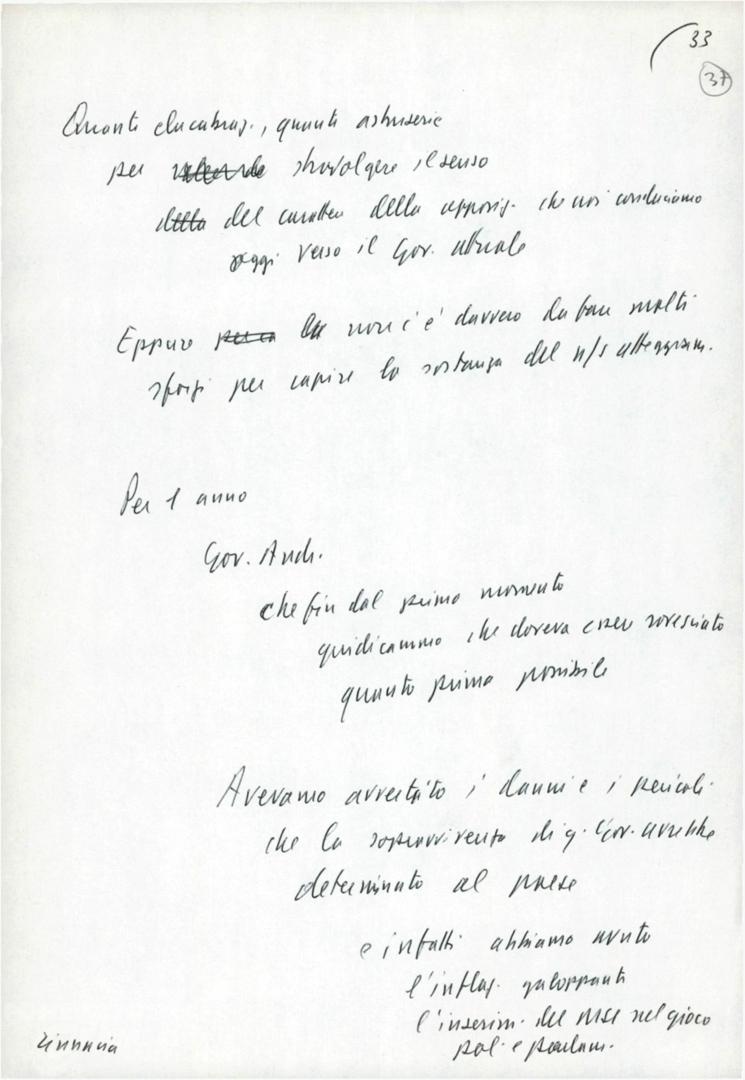 33
37
Quante elucubraz., quante astruserie
per stravolgere il senso
della del carattere della opposiz. che noi conduciamo
oggi verso il Gov. attuale
Eppure non c'è davvero da fare molti
sforzi per capire la sostanza del n/s atteggiam.
Per 1 anno
Gov. Andr.
che fin dal primo momento
giudicammo che doveva esser rovesciato
quanto prima possibile
Avevamo avvertito i danni e i pericoli
che la sopravvivenza di q. Gov. avrebbe
determinato al paese
e infatti abbiamo avuto
l'inflaz. galoppante
l'inserim. del MSI nel gioco
pol. e parlam.